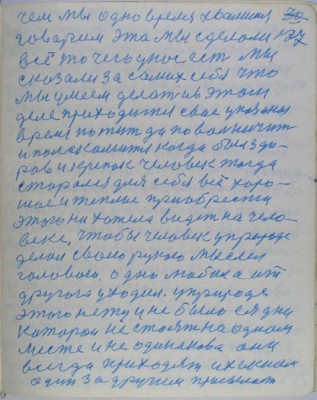 чем мы одно время хвалимся 30
говорим это мы сделали 127
всё то чего у нас есть мы
сказали за самих себя что
мы умеем делать в этом
деле приходится своё указанное
время
и полакомится когда был здо-
ров и крепок человек тогда
старался для себя всё хоро-
шое и тёплое приобрести
этого не хотела видеть на чело-
веке, чтобы человек у природе
делал своею рукою мыслею
головою, одно любоха от
другого уходил. у природе
этого нету и не было ея дни
которои не стоять на одном
месте и не одинаково они
всегда приходят
один за другим